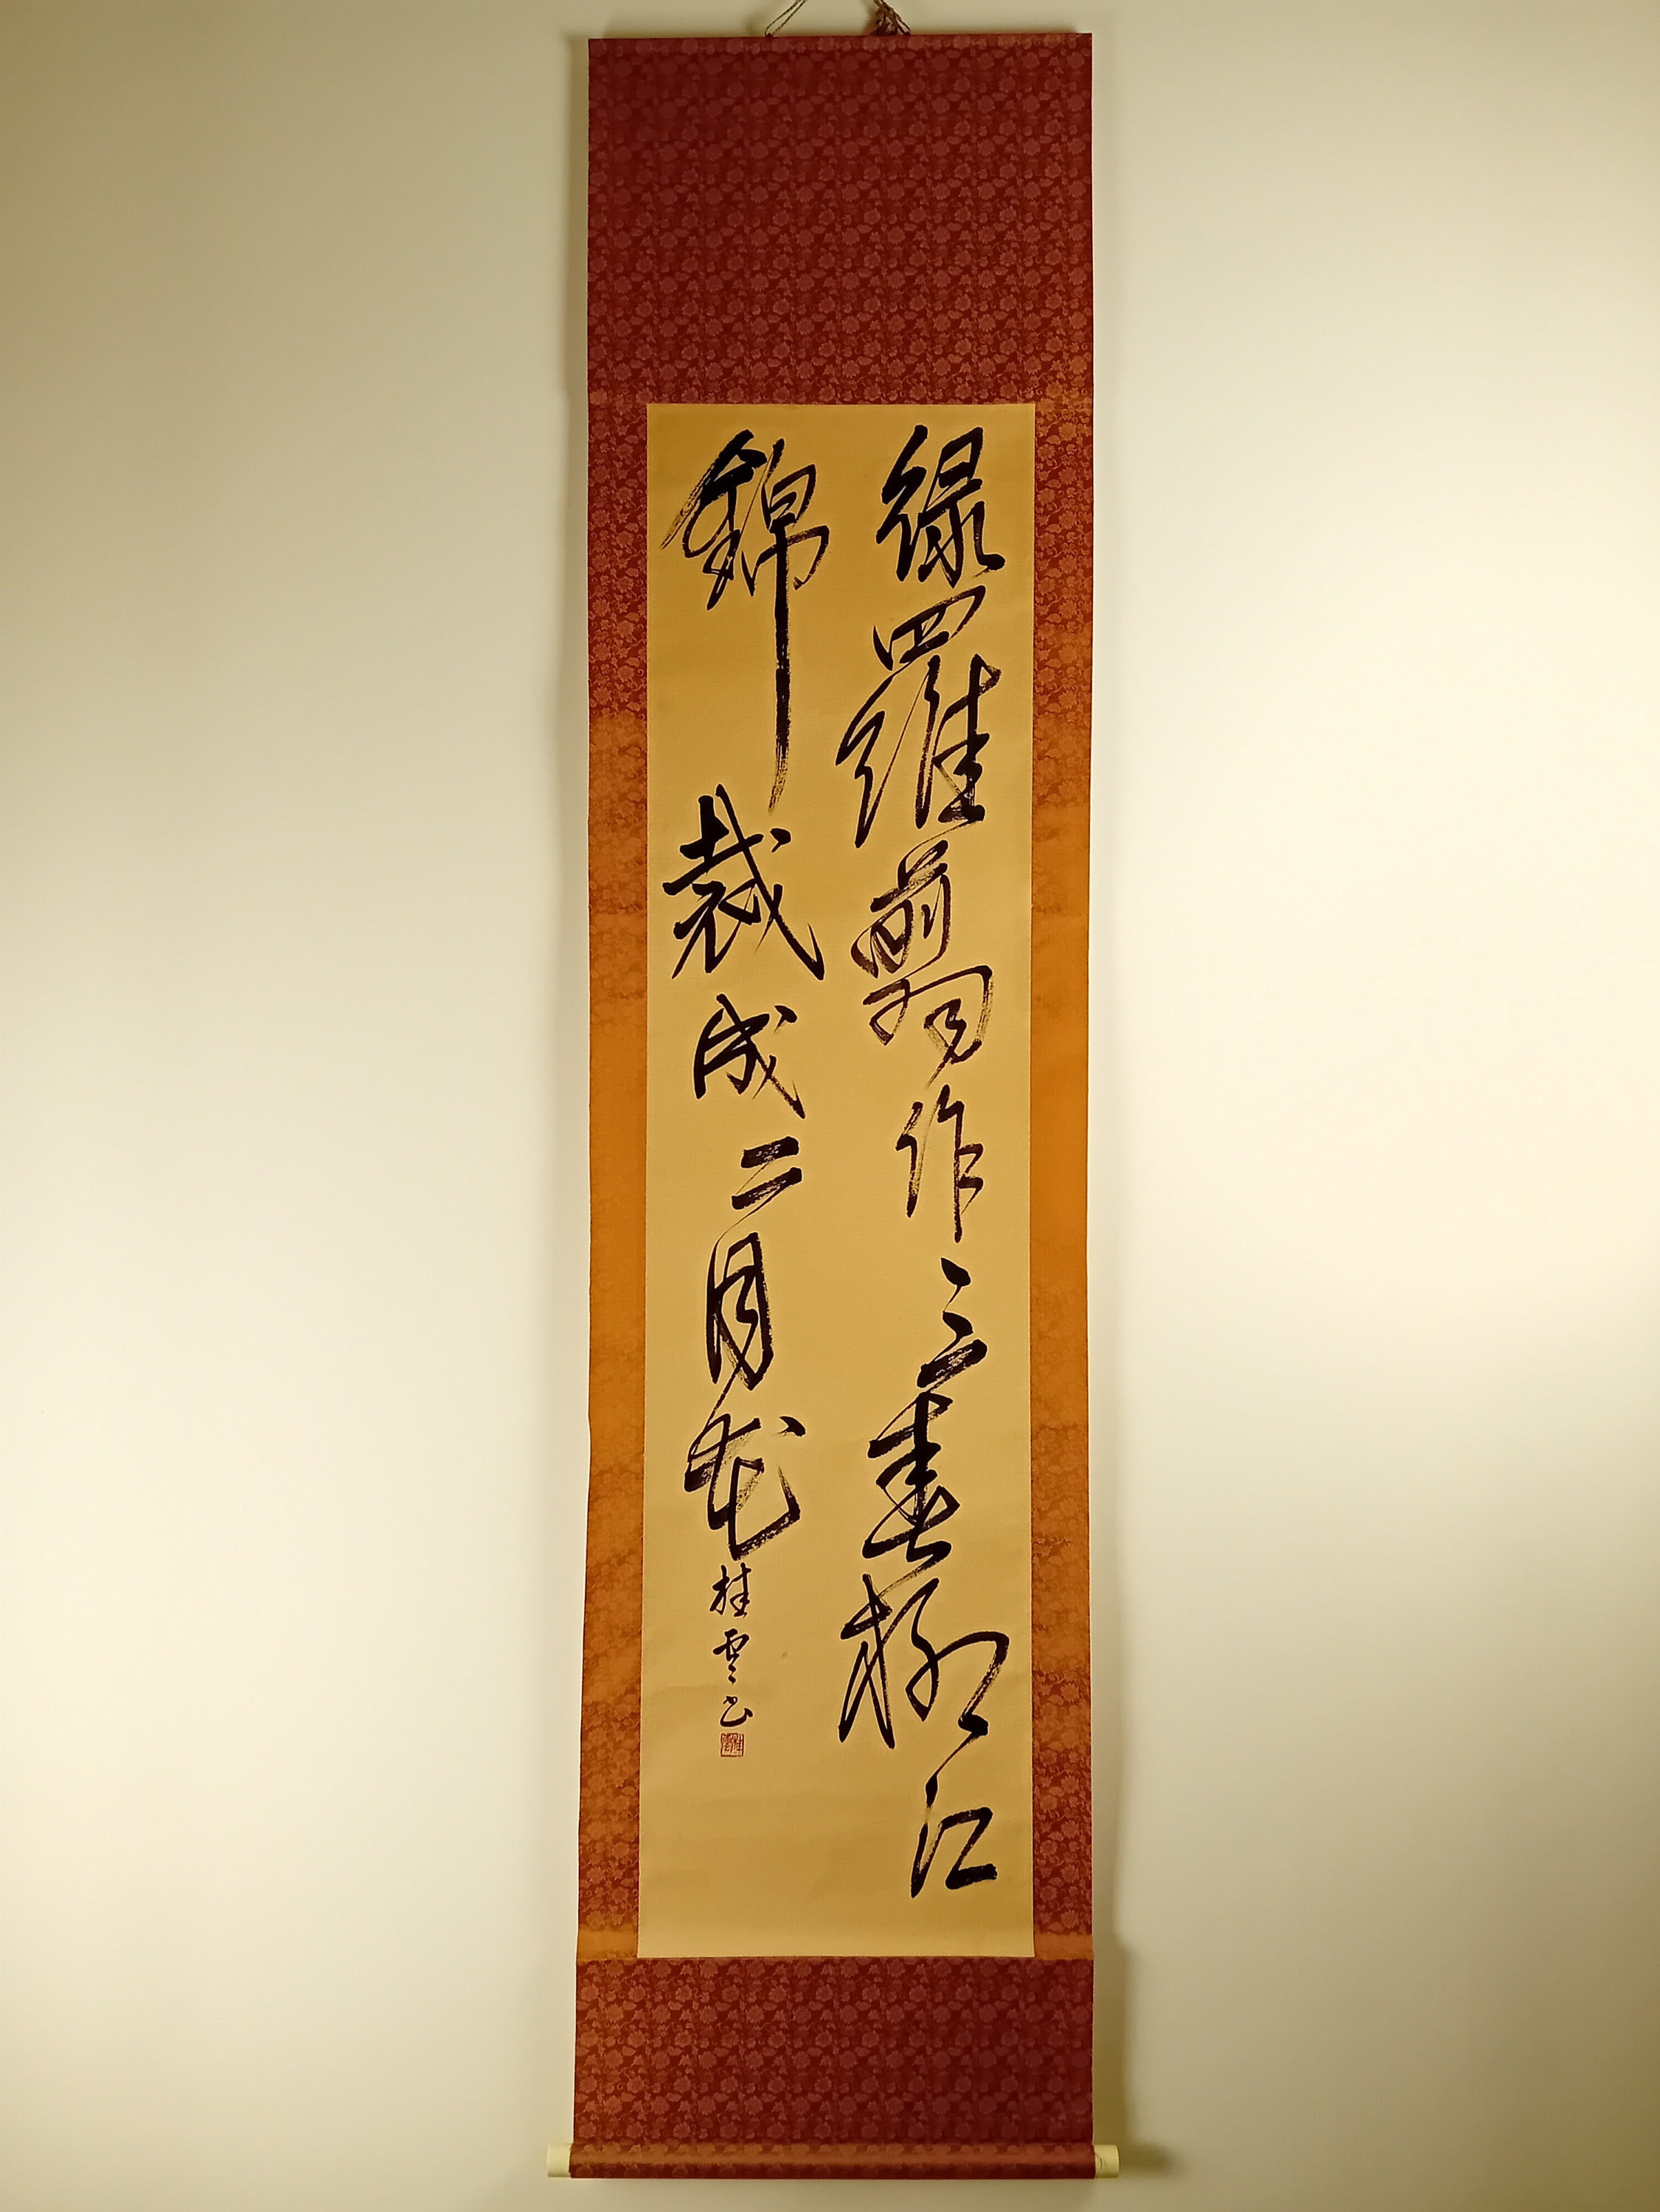 緑羅剪作三春柳紅
錦裁成二月花
桂雲書